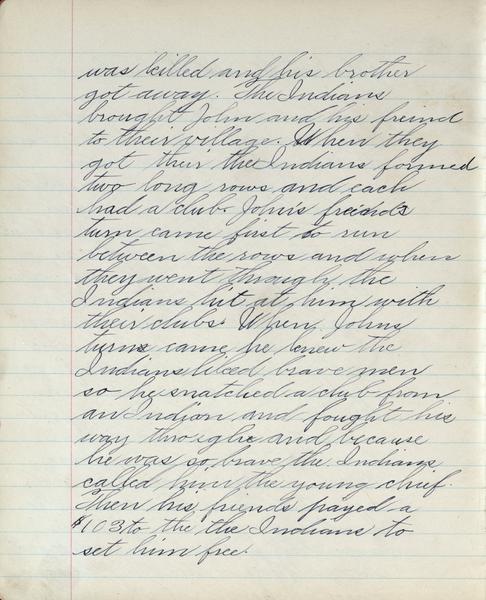 was killed and his brother
got away. The Indians
brought John and his freind
to their village. When they
got their the Indians formed
two long rows and each
had a club. John's freinds
turn came first to run
between the rows and when
they went through the
Indians hit at him with
their clubs. When Johns
turns came he knew the
Indians liked brave men
so he snatched a club from
an Indian and fought his
way through and because
he was so brave the Indians
called him the young chief.
Then his friends payed a
$103 to the the Indians to
set him free.